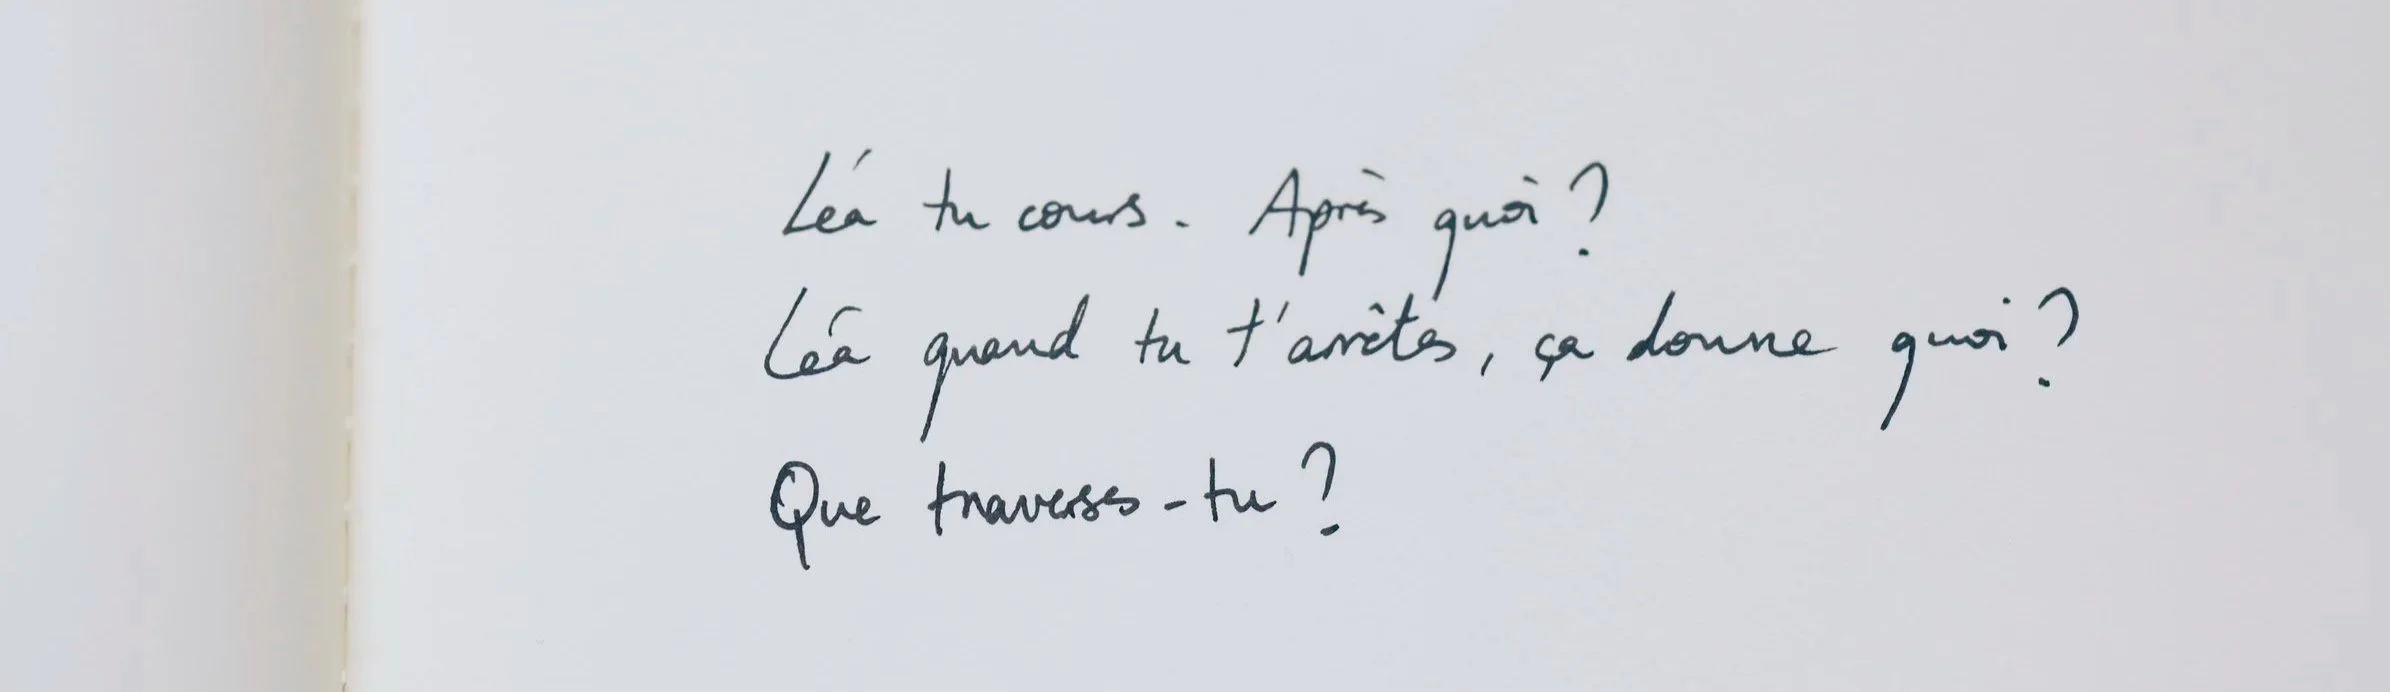 Léa tu cours. Après quoi ?
Léa quand tu t'arrêtes, ça donne quoi ?
Que traverses-tu ?